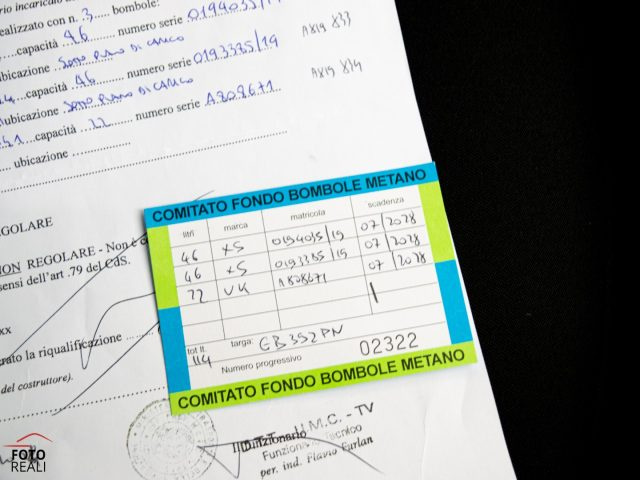 rio incaricato
ealizzato con n. 3 bombole:
capacità 46 numero serie 0194035/19
ubicazione SOTTO PIANO DI CARICO AX19 833
capacità 46 numero serie 0193385/19
ubicazione SOTTO PIANO DI CARICO AX19 834
capacità 22 numero serie A808671
ubicazione
EGOLARE
NON REGOLARE - Non è
sensi dell'art .79 del CdS.
xx
erato la riqualificazione
del costruttore).
COMITATO FONDO BOMBOLE METANO
litri marca matricola scadenza
46 XS 0194035/19 07/2028
46 XS 0193385/19 07/2028
22 UK A808671 07/2028
tot lt. 114 targa: EB352PN
Numero progressivo 02322
COMITATO FONDO BOMBOLE METANO
U.M.C. - TV
Il Funzionario
Funzionario Tecnico
per. ind. Flavio Furlan
FOTO
REALI